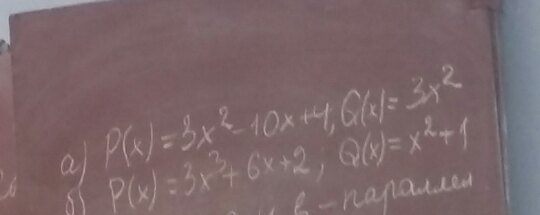 а) P(x) = 3x² - 10x + 4, Q(x) = 3x²
б) P(x) = 3x³ + 6x + 2, Q(x) = x² + 1
- параллел